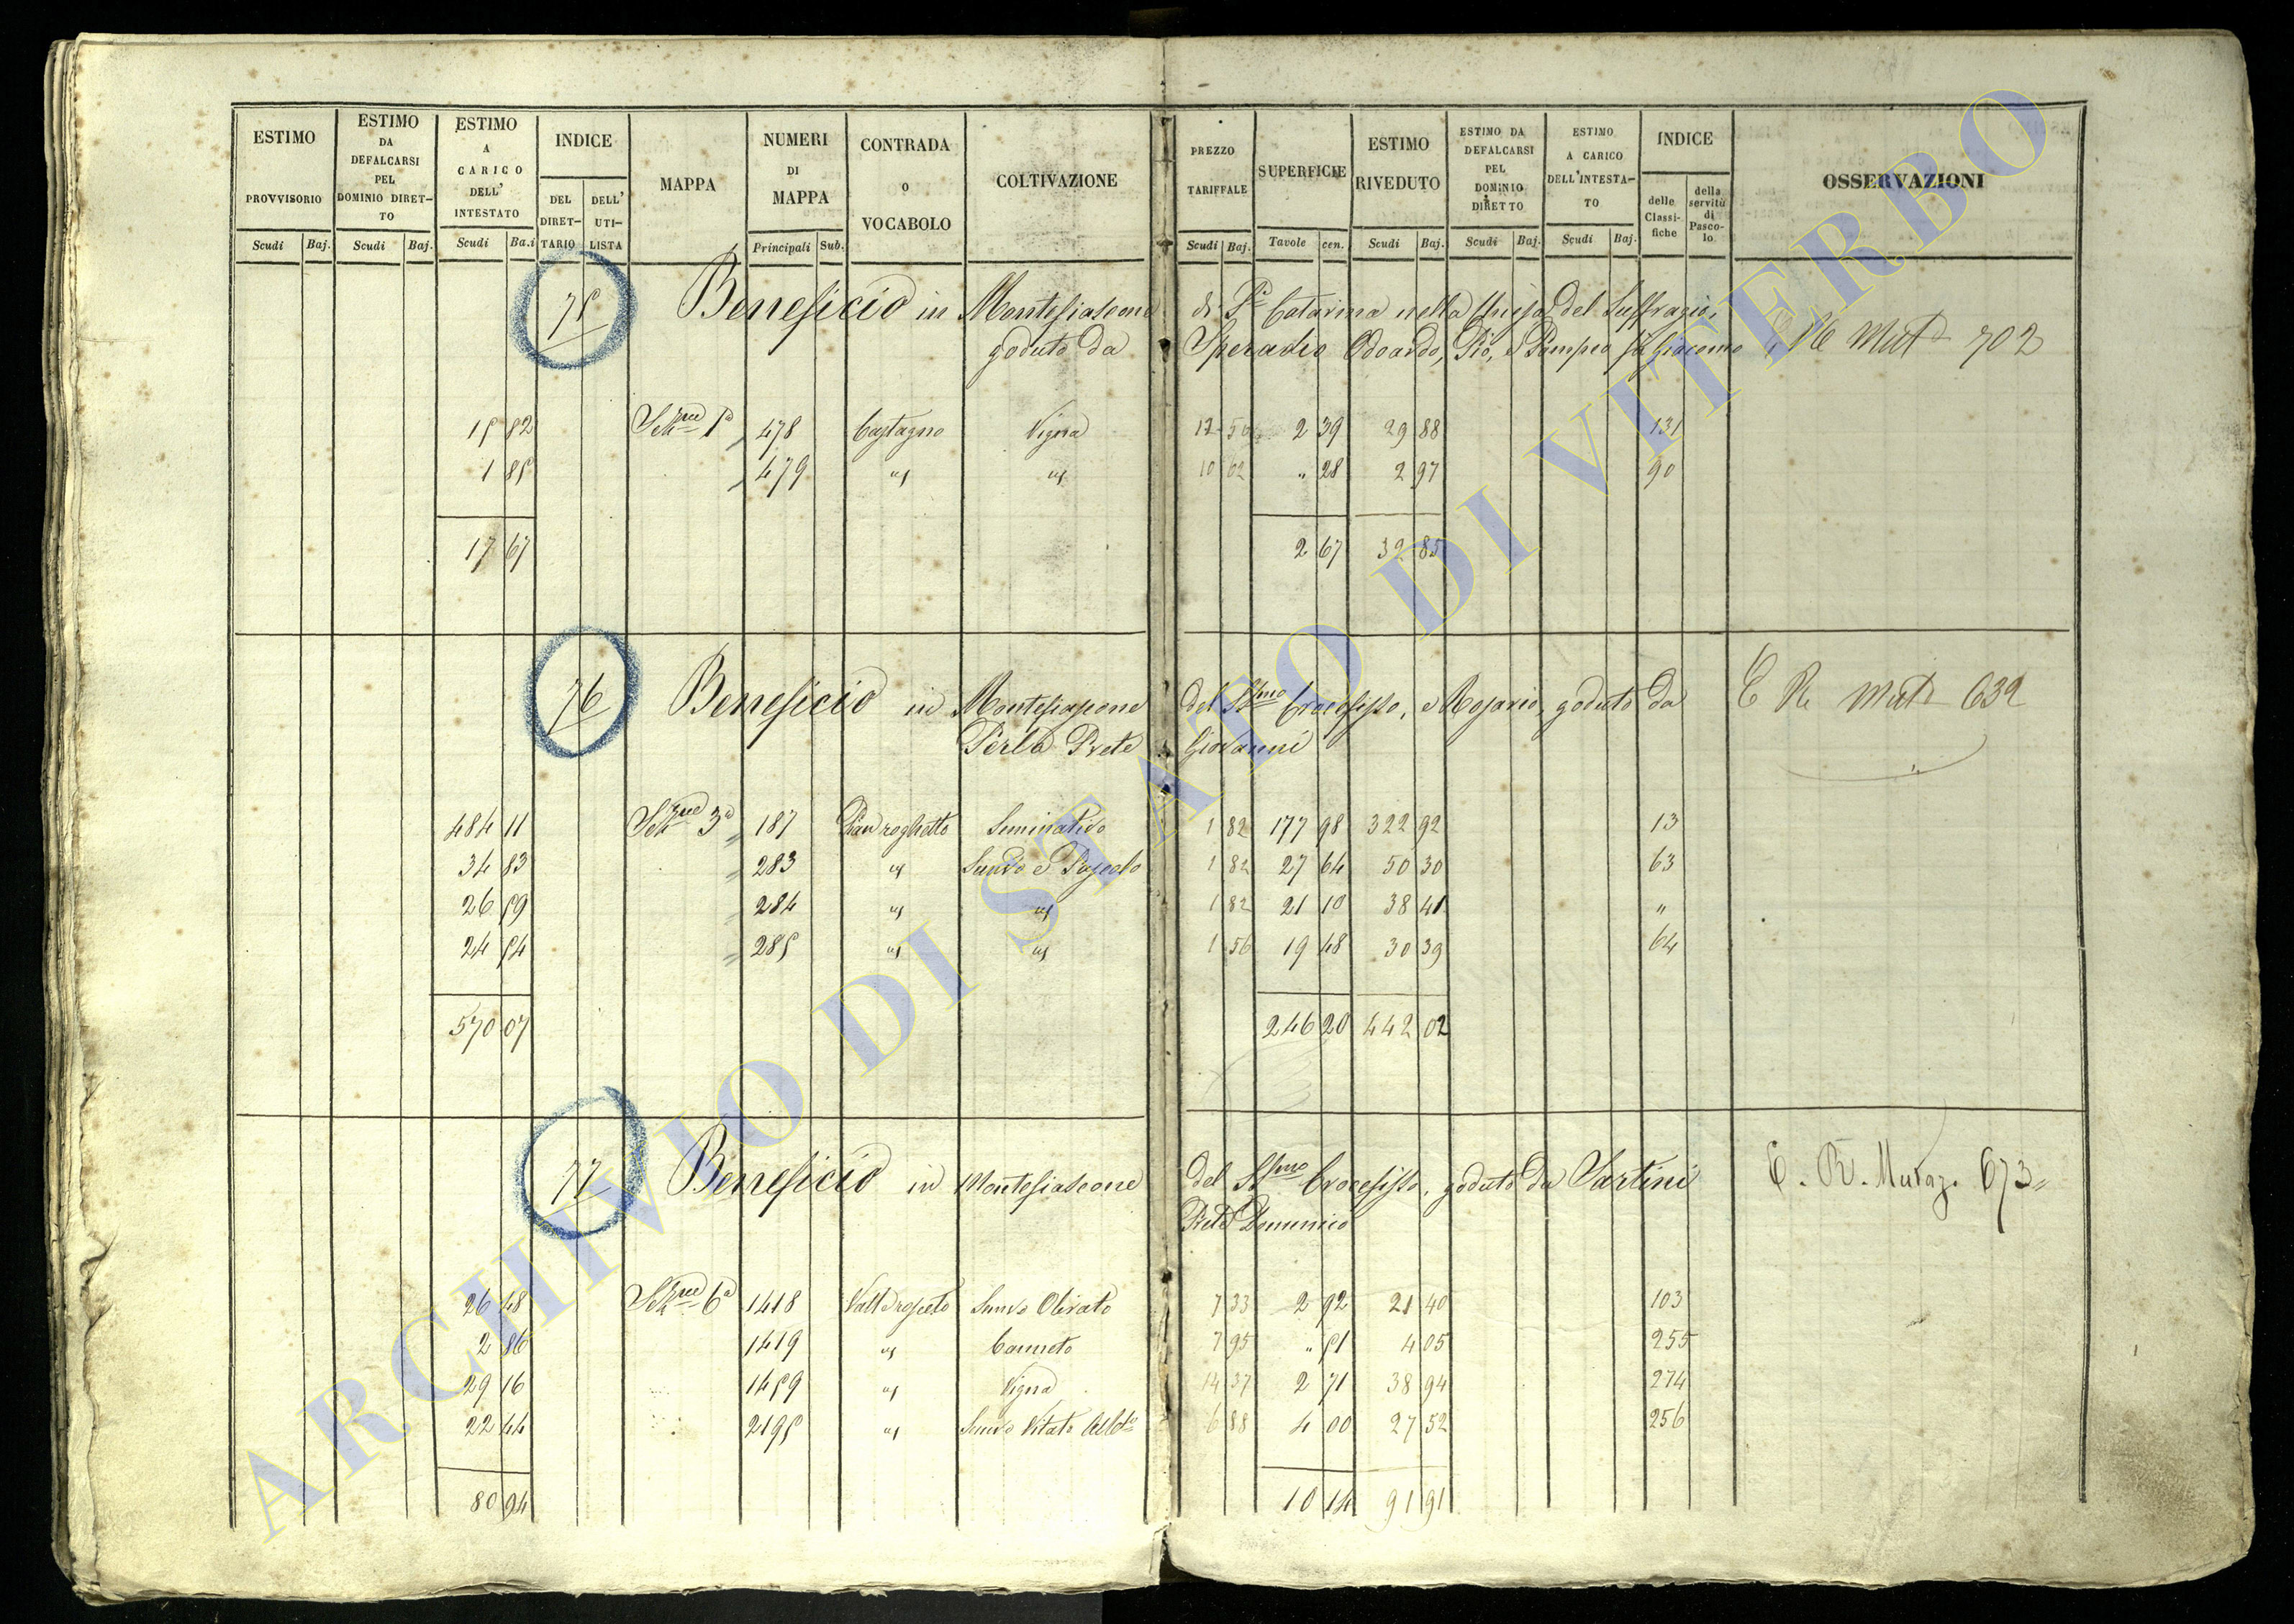 ESTIMO PROVVISORIO Scudi Baj.
ESTIMO DA DEFALCARSI PEL DOMINIO DIRET-TO Scudi Baj.
ESTIMO A CARICO DELL' INTESTATO Scudi Ba.i
INDICE DEL DIRET-TARIO DELL' UTI-LISTA
MAPPA
NUMERI DI MAPPA Principali Sub.
CONTRADA O VOCABOLO
COLTIVAZIONE
PREZZO TARIFFALE Scudi Baj.
SUPERFICIE Tavole cen.
ESTIMO RIVEDUTO Scudi Baj.
ESTIMO DA DEFALCARSI PEL DOMINIO DIRETTO Scudi Baj.
ESTIMO A CARICO DELL'INTESTA-TO Scudi Baj.
INDICE delle Classi-fiche della servitù di Pasco-lo
OSSERVAZIONI
75 Beneficio in Montefiascone di Sa Catarina nella Chiesa del Suffragio,
goduto da Speradio Odoardo, Pio, e Pompeo fu Giacomo Mut 702
15 82 Sezne 1a 478 Castagno Vigna 12 50 2 39 29 88 131
1 85 479 us us 10 62 " 28 2 97 90
17 67 2 67 32 85
76 Beneficio in Montefiascone del SSmo Crocefisso, e Rosario, goduto da C R. Mut 632
Perla Prete Giovanni
484 11 Sezne 3a 187 Seminativo 1 82 177 98 322 92 13
34 83 283 us Semvo e Pascolo 1 82 27 64 50 30 63
26 59 284 us us 1 82 21 10 38 41 "
24 54 285 us us 1 56 19 48 30 39 64
570 07 246 20 442 02
77 Beneficio in Montefiascone del SSmo Crocefisso, goduto da Sartini C. R. Mutaz. 673
Prete Domenico
26 48 Sezne 6a 1418 Semvo Olivato 7 33 2 92 21 40 103
2 86 1419 us Canneto 7 95 " 51 4 05 255
29 16 1459 us Vigna 14 37 2 71 38 94 274
22 44 2195 us Semvo Vitato Albto 6 88 4 00 27 52 256
80 94 10 14 91 91
ARCHIVIO DI STATO DI VITERBO